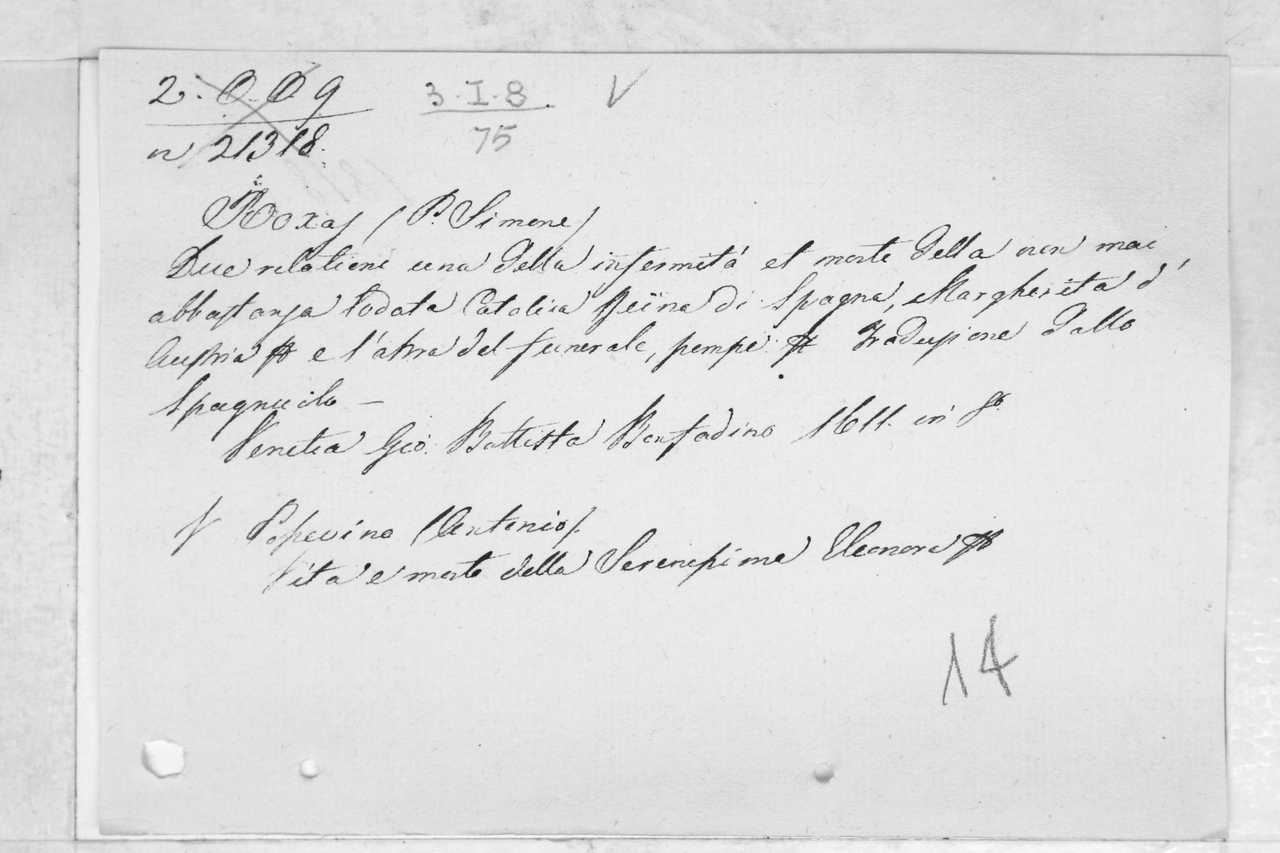 2. O. D 9
3.I.8. V
n 21318.
75
Roxas (P. Simone)
Due relationi una della infermità et morte della non mai
abbastanza lodata Catolica Reina di Spagna, Margherita d'
Austria & e l'altra del funerale, pompe & Traduzione dallo
Spagnuolo —
Venetia Gio. Battista Bonfadino 1611. in 8º
V (Antonio).
Vita e morte della Serenissima Eleonora &
14